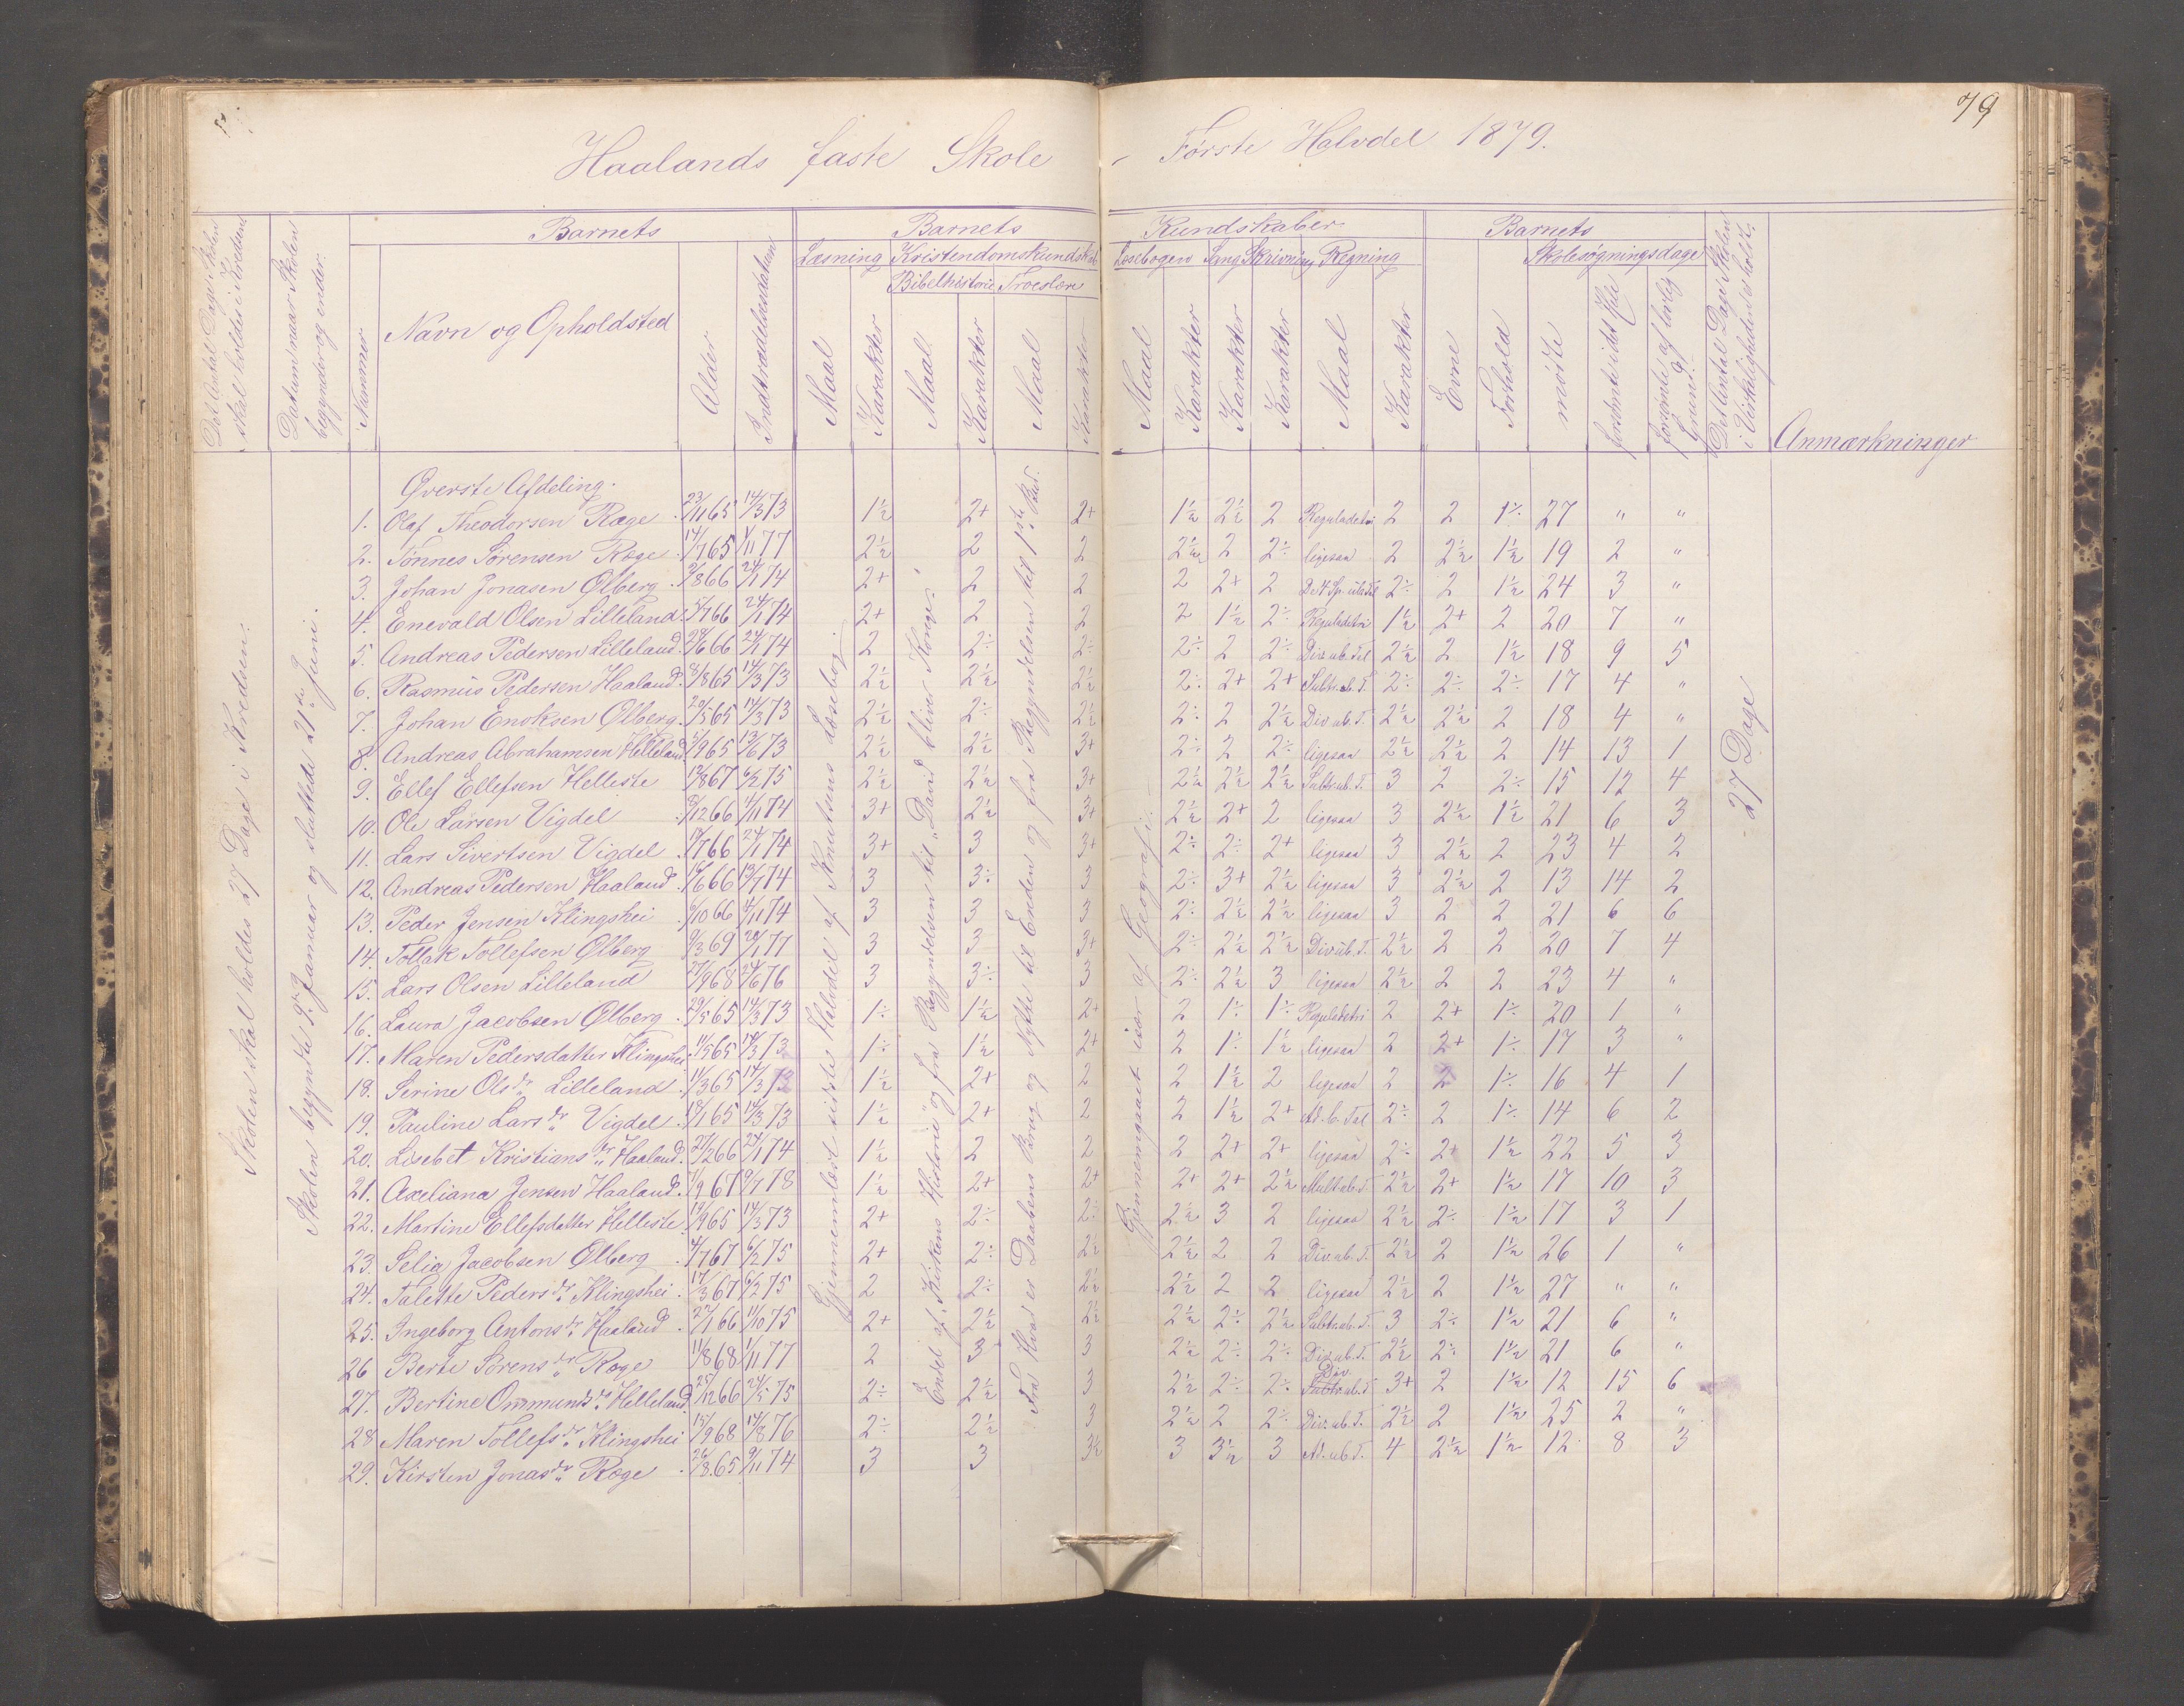 79
Haalands faste Skole - Første Halvdel 1879.
Det Antal Dage Skolen skal holdes i Kredsen
Datum naar Skolen begynder og ender.
Barnets
Nummer
Navn og Opholdsted
Alder
Indtrædelsesdatum
Barnets Kundskaber
Læsning Kristendomskundskab Læsebogen Sang Skrivning Regning
Bibelhistorie Troeslære
Maal Karakter Maal Karakter Maal Karakter Maal Karakter Karakter Karakter Maal Karakter
Barnets
Evne Forhold
Skolesøgningsdage
mødte
forsømte i det Hele
forsømte af lovlig Grund
Det Antal Dage Skolen i Virkeligheden er holdt.
Anmærkninger
Skolen skal holdes 27 Dage i Kredsen.
Skolen begyndte 9de Januar og sluttede 21de Juni.
Gjennemlæst sidste Halvdel af Knutsens Læsebog.
Endel af "Kirkens Historie" og fra Begyndelsen til "David bliver Konge".
Fra Hvad er Daabens Brug og Nytte til Enden og fra Begyndelsen til 1ste Bud.
Gjennemgaaet især af Geografi.
27 Dage
Øverste Afdeling.
1. Olaf Theodorsen Ræge 23/11 65 14/3 73 1½ 2+ 2+ 1½ 2½ 2 Reguladetri 2 2 1÷ 27 " "
2. Tønnes Sørensen Ræge 14/7 65 1/11 77 2½ 2 2 2½ 2 2÷ ligesaa 2 2½ 1½ 19 2 "
3. Johan Jonasen Ølberg 2/8 66 24/1 74 2+ 2 2 2 2+ 2 2÷ 2 1½ 24 3 "
4. Enevald Olsen Lilleland 5/7 66 24/1 74 2+ 2 2 2 1½ 2÷ Reguladetri 1½ 2+ 2 20 7 "
5. Andreas Pedersen Lilleland 28/6 66 24/1 74 2 2÷ 2÷ 2÷ 2 2÷ Div. ub. Tal 2½ 2 1½ 18 9 5
6. Rasmus Pedersen Haaland 8/8 65 14/3 73 2½ 2½ 2½ 2÷ 2+ 2+ Subtr. ub. T. 2÷ 2÷ 2÷ 17 4 "
7. Johan Enoksen Ølberg 20/5 65 14/3 73 2½ 2÷ 2½ 2÷ 2 2½ Div. ub. T. 2½ 2½ 2 18 4 "
8. Andreas Abrahamsen Helleland 1/9 65 13/6 73 2½ 2½ 3+ 2÷ 2 2÷ ligesaa 2½ 2½ 2 14 13 1
9. Ellef Ellefsen Helliste 12/8 67 6/2 75 2½ 2½ 3+ 2½ 2½ 2½ Subtr. ub. T. 3 2 2÷ 15 12 4
10. Ole Larsen Vigdel 9/12 66 4/11 74 3+ 2½ 3+ 2½ 2+ 2 ligesaa 3 2½ 1½ 21 6 3
11. Lars Sivertsen Vigdel 17/7 66 24/1 74 3+ 3 3+ 2÷ 2÷ 2+ ligesaa 3 2½ 2 23 4 2
12. Andreas Pedersen Haaland 16/6 66 13/7 74 3 3÷ 3 2÷ 3+ 2½ ligesaa 3 2½ 2 13 14 2
13. Peder Jensen Klingshei 6/10 66 4/11 74 3 3 3 2÷ 2½ 2½ ligesaa 3 2 2 21 6 6
14. Tollak Tollefsen Ølberg 9/3 69 20/1 77 3 3 3+ 2÷ 2½ 2½ Div. ub. T. 2½ 2 2 20 7 4
15. Lars Olsen Lilleland 27/9 68 24/6 76 3 3÷ 3 2÷ 2½ 3 ligesaa 2½ 2 2 23 4 "
16. Laura Jacobsen Ølberg 29/5 65 14/3 73 1÷ 1½ 2+ 2 1÷ 1÷ Reguladetri 2 2+ 1÷ 20 1 "
17. Maren Pedersdatter Klingshei 11/5 65 14/3 73 1÷ 1½ 2+ 2 1÷ 1½ ligesaa 2 2+ 1÷ 17 3 "
18. Serine Olsdr Lilleland 11/3 65 14/3 73 1½ 2+ 2 2 1½ 2 ligesaa 2 2 1÷ 16 4 1
19. Pauline Larsdr Vigdel 18/1 65 14/3 73 1½ 2+ 2 2 1½ 2+ Ad. b. Tal 2÷ 2 1÷ 14 6 2
20. Lisebet Kristiansdr Haaland 27/2 66 24/1 74 1½ 2 2 2 2+ 2+ ligesaa 2÷ 2+ 1½ 22 5 3
21. Axeliana Jensen Haaland 1/9 67 9/7 78 1½ 2+ 2+ 2+ 2+ 2½ Mult. ub. T. 2½ 2+ 1½ 17 10 3
22. Martine Ellefsdatter Helliste 19/9 65 14/3 73 2+ 2÷ 2÷ 2½ 3 2 ligesaa 2½ 2÷ 1½ 17 3 1
23. Selia Jacobsen Ølberg 4/7 67 6/2 75 2+ 2÷ 2½ 2½ 2 2 Div. ub. T. 2½ 2 1½ 26 1 "
24. Talette Pedersdr Klingshei 17/3 67 6/2 75 2 2÷ 2½ 2½ 2 2 ligesaa 2½ 2 1½ 27 " "
25. Ingeborg Antonsdr Haaland 27/1 66 11/10 75 2+ 2½ 2½ 2½ 2÷ 2½ Subtr. ub. T. 3 2÷ 1½ 21 6 "
26 Berte Sørensdr Ræge 11/8 68 1/11 77 2 3 3 2½ 2÷ 2÷ Div. ub. T. 2½ 2÷ 1½ 21 6 "
27. Bertine Ommundsdr Helleland 25/12 66 24/5 75 2÷ 2½ 3 2½ 2÷ 2÷ Div ub. T 3+ 2 1½ 12 15 6
28 Maren Tollefsdr Klingshei 15/9 68 14/8 76 2÷ 2½ 3 2½ 2 2÷ Div. ub. T. 2½ 2 1½ 25 2 "
29. Kirsten Jonasdr Ræge 26/8 65 9/11 74 3 3 3½ 3 3½ 3 Ad. ub. T. 4 2½ 1½ 12 8 3